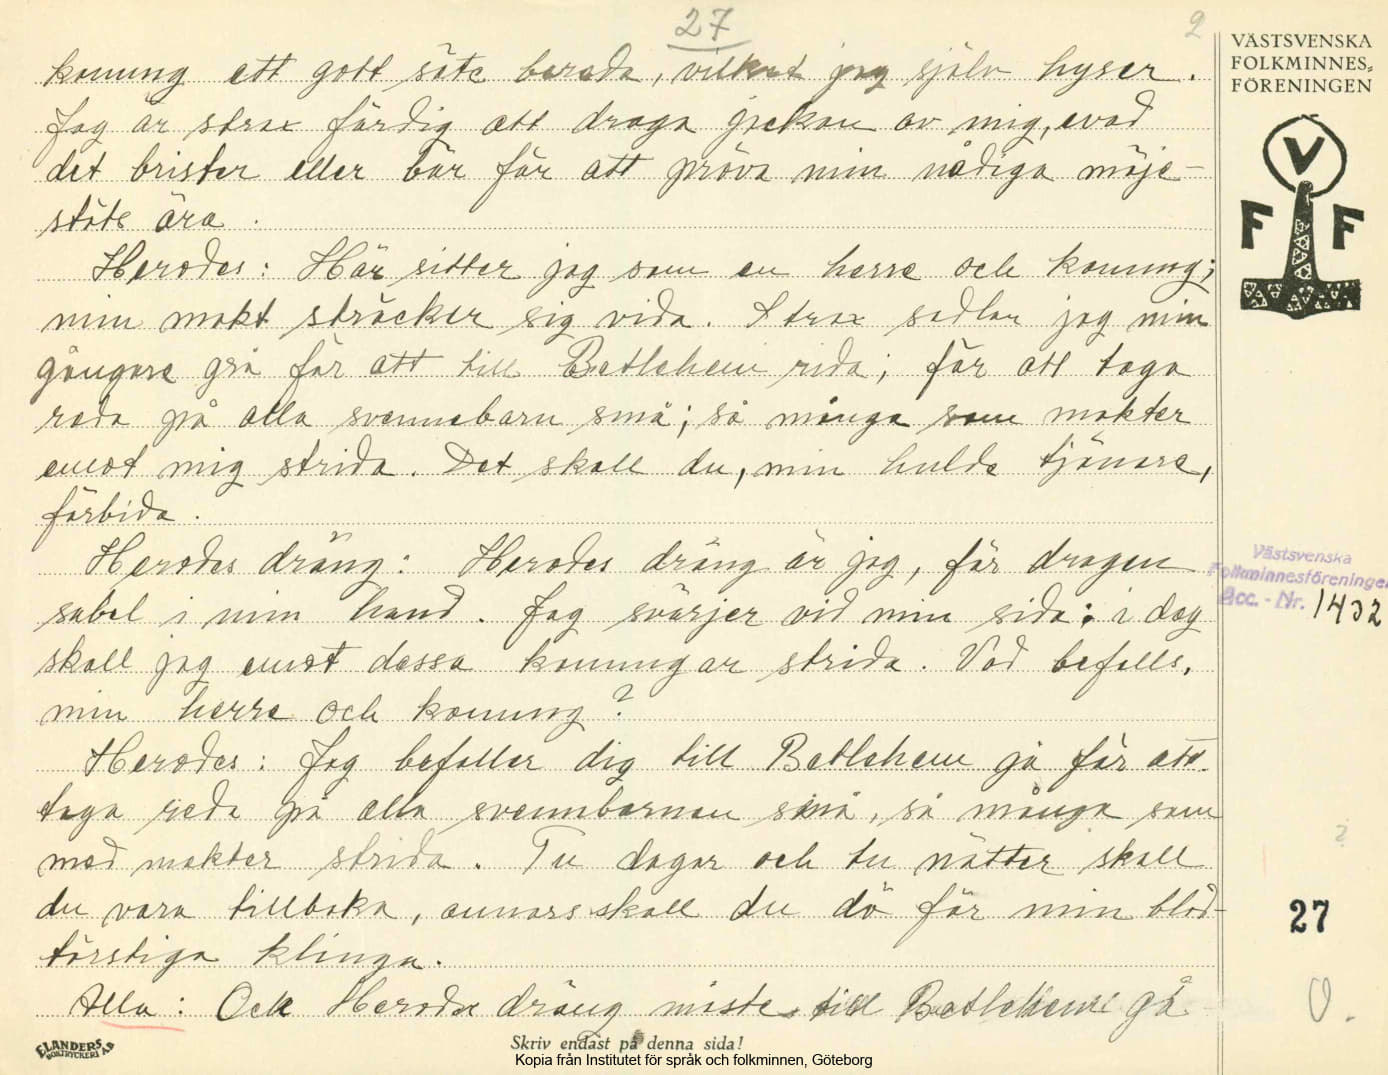 27
2
konung ett gott säte bereda, vilket jag själv hyser.
Jag är strax färdig att draga jackan av mig, evad
det brister eller bär för att pröva min nådiga maje-
stäts ära.
Herodes: Här sitter jag som en herre och konung;
min makt sträcker sig vida. Strax sadlar jag min
gångare grå för att till Betlehem rida; för att taga
reda på alla svennebarn små; så många som makter
emot mig strida. Det skall du, min hulde tjänare,
förbida.
Herodes dräng: Herodes dräng är jag, för dragen
sabel i min hand. Jag svärjer vid min sida: i dag
skall jag emot dessa konungar strida. Vad befalls,
min herre och konung?
Herodes: Jag befaller dig till Betlehem gå för att
taga reda på alla svennbarnen små, så många som
med makter strida. Tu dagar och tu nätter skall
du vara tillbaka, annars skall du dö för min blod-
törstiga klinga.
Alla: Ock Herodes dräng miste till Betlehem gå
VÄSTSVENSKA
FOLKMINNES-
FÖRENINGEN
V
F F
Västsvenska
Folkminnesföreningen
Acc. - Nr. 1432
?
27
V.
ELANDERS
BOKTRYCKERI AB
Skriv endast på denna sida!
Kopia från Institutet för språk och folkminnen, Göteborg